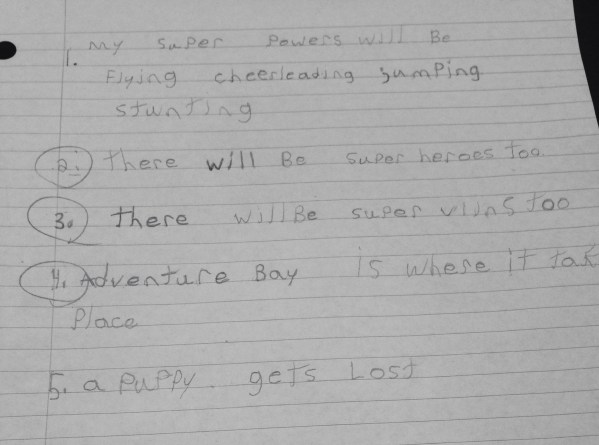 1. My super Powers will Be
Flying cheerleading jumping
stunting
2. there will Be super heroes too
3. there will Be super viins too
4. Adventure Bay is where it tak
Place
5. a puppy. gets Lost